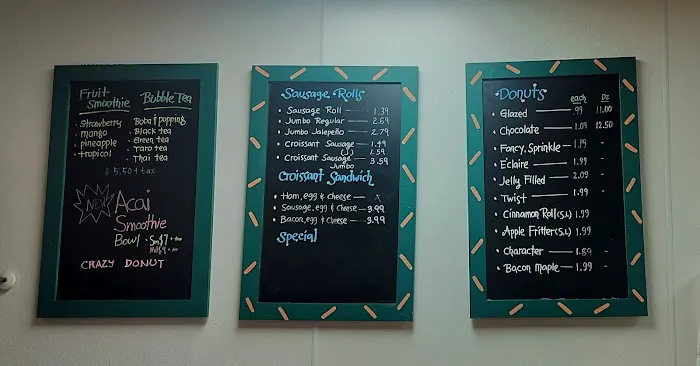 Fruit Smoothie
Strawberry
mango
pineapple
tropical
Bubble Tea
Boba & popping
Black tea
Green tea
Taro tea
Thai tea
$5.50 + tax
NEW
Acai
Smoothie
Bowl • Sm $7 + tax
CRAZY DONUT
Sausage Rolls
• Sausage Roll — 1.39
• Jumbo Regular — 2.69
• Jumbo Jalepeño — 2.79
• Croissant Sausage — 1.49
• Croissant Sausage (J) 1.59
Jumbo 3.59
Croissant Sandwich
• Ham, egg & Cheese — x
• Sausage, egg & Cheese — 3.99
• Bacon, egg & Cheese — 3.99
Special
Donuts each Dz
• Glazed — .99 11.00
• Chocolate — 1.09 12.50
• Fancy, Sprinkle — 1.19 -
• Eclaire — 1.99 -
• Jelly Filled — 2.09 -
• Twist — 1.99 -
• Cinnamon Roll (S,L) 1.99 -
• Apple Fritter (S,L) 1.99 -
• Character — 1.89 -
• Bacon Maple — 1.99 -